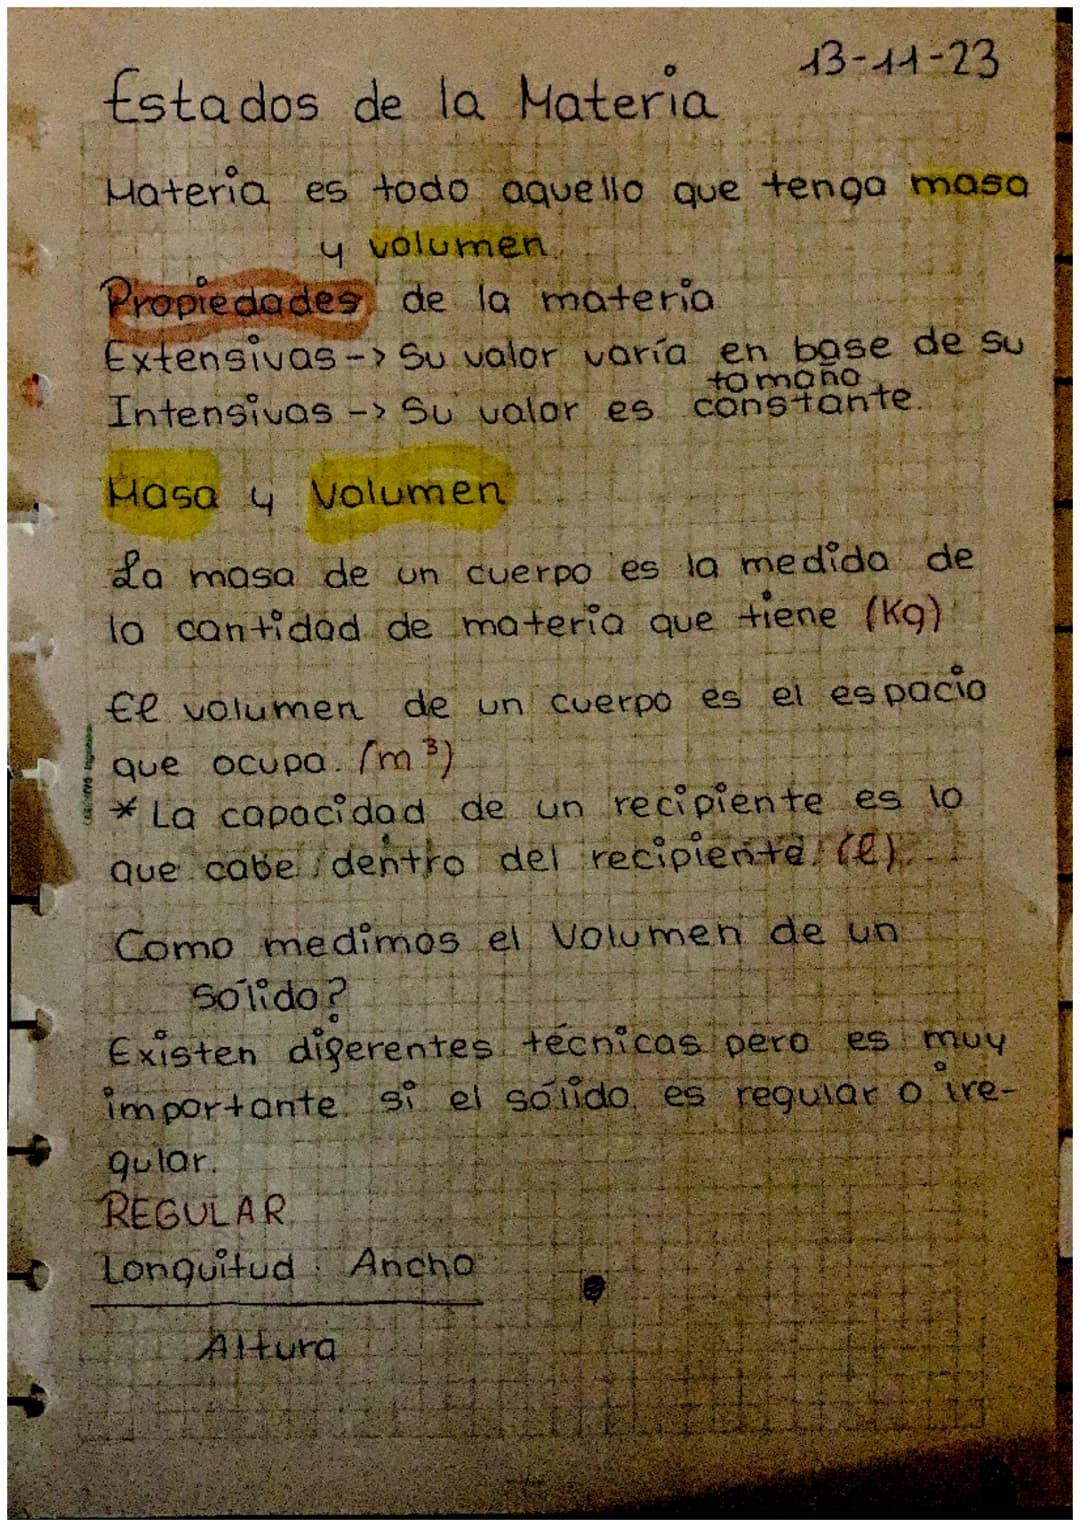 13-11-23
Estados de la Materia
Materia es todo aquello que tenga masa
y volumen.
Propiedades de la materia
Extensivas -> Su valor varía en base de su
tamaño
Intensivas -> Su valor es constante.
Masa y Volumen
La masa de un cuerpo es la medida de
la cantidad de materia que tiene (Kg)
El volumen de un cuerpo es el espacio
que ocupa. (m³)
* La capacidad de un recipiente es lo
que cabe dentro del recipiente. (l)
Como medimos el Volumen de un
sólido?
Existen diferentes técnicas pero es muy
importante si el sólido es regular o ire-
gular.
REGULAR
Longuitud · Ancho
Altura